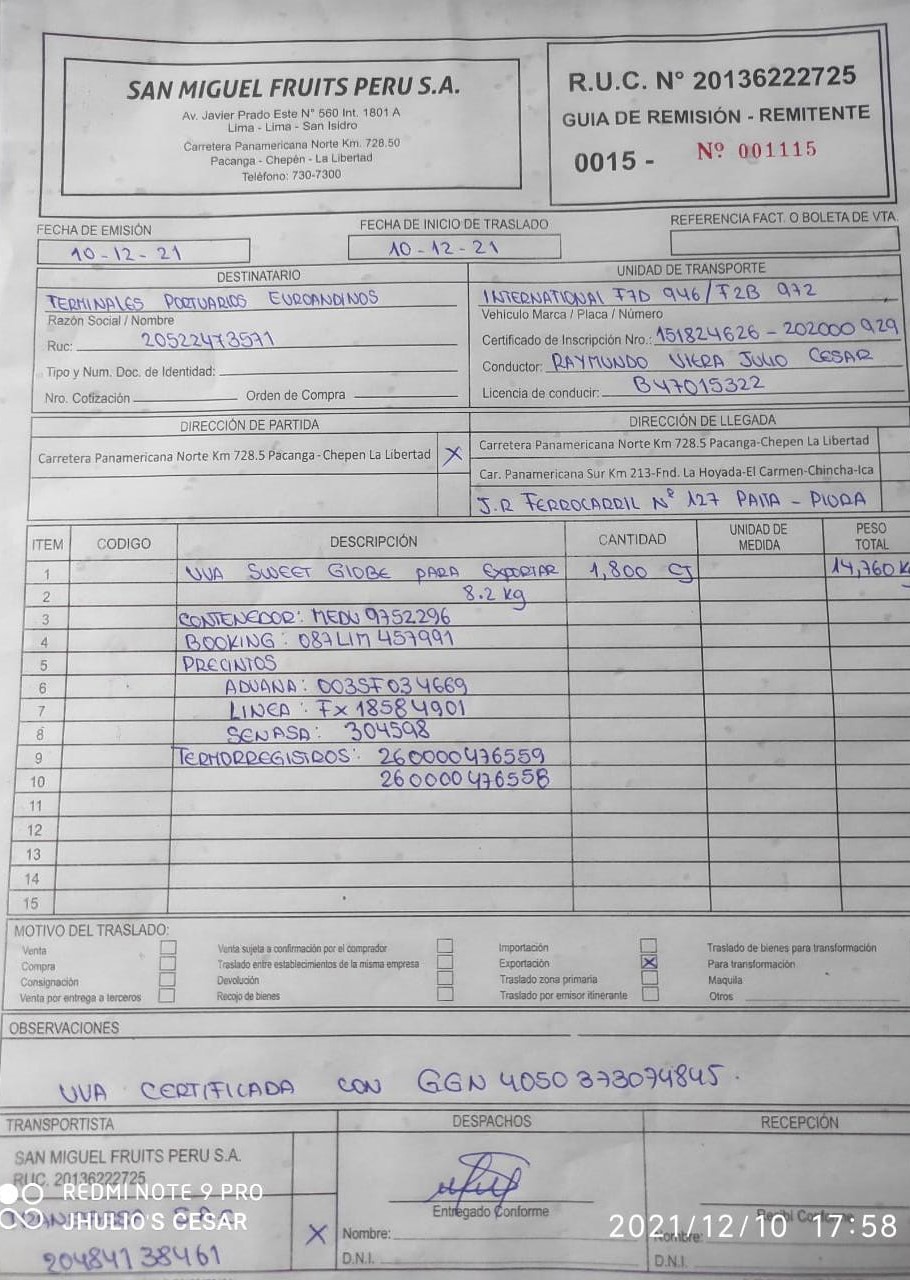 SAN MIGUEL FRUITS PERU S.A.
Av. Javier Prado Este N° 560 Int. 1801 A
Lima - Lima - San Isidro
Carretera Panamericana Norte Km. 728.50
Pacanga - Chepén - La Libertad
Teléfono: 730-7300
R.U.C. N° 20136222725
GUIA DE REMISIÓN - REMITENTE
0015 - Nº 001115
FECHA DE EMISIÓN
10-12-21
FECHA DE INICIO DE TRASLADO
10-12-21
REFERENCIA FACT. O BOLETA DE VTA.
DESTINATARIO
TERMINALES PORTUARIOS EUROANDINOS
Razón Social / Nombre
Ruc: 20522473571
Tipo y Num. Doc. de Identidad:
Nro. Cotización Orden de Compra
UNIDAD DE TRANSPORTE
INTERNATIONAL F7D 946/F2B 972
Vehículo Marca / Placa / Número
Certificado de Inscripción Nro.: 151824626 - 202000929
Conductor: RAYMUNDO VIERA JULIO CESAR
Licencia de conducir: B47015322
DIRECCIÓN DE PARTIDA
Carretera Panamericana Norte Km 728.5 Pacanga-Chepen La Libertad X
DIRECCIÓN DE LLEGADA
Carretera Panamericana Norte Km 728.5 Pacanga-Chepen La Libertad
Car. Panamericana Sur Km 213-Fnd. La Hoyada-El Carmen-Chincha-Ica
J.R FERROCARRIL Nº 127 PAITA - PIURA
ITEM CODIGO DESCRIPCIÓN CANTIDAD UNIDAD DE MEDIDA PESO TOTAL
1 UVA SWEET GLOBE PARA EXPORTAR 1,800 CJ 14,760 K
2 8.2 kg
3 CONTENEDOR: MEDU 9752296
4 BOOKING: 087LIM457991
5 PRECINTOS
6 ADUANA: 003SF034669
7 LINEA: FX18584901
8 SENASA: 304598
9 TERMORREGISTROS: 260000476559
10 260000476558
11
12
13
14
15
MOTIVO DEL TRASLADO:
Venta
Compra
Consignación
Venta por entrega a terceros
Venta sujeta a confirmación por el comprador
Traslado entre establecimientos de la misma empresa
Devolución
Recojo de bienes
Importación
Exportación X
Traslado zona primaria
Traslado por emisor itinerante
Traslado de bienes para transformación
Para transformación
Maquila
Otros
OBSERVACIONES
UVA CERTIFICADA CON GGN 4050373074845.
TRANSPORTISTA
SAN MIGUEL FRUITS PERU S.A.
RUC. 20136222725
20484138461
X
DESPACHOS
Entregado Conforme
Nombre:
D.N.I.
RECEPCIÓN
Recibí Conforme
Nombre:
D.N.I.
REDMI NOTE 9 PRO
JHULIO'S CESAR
2021/12/10 17:58